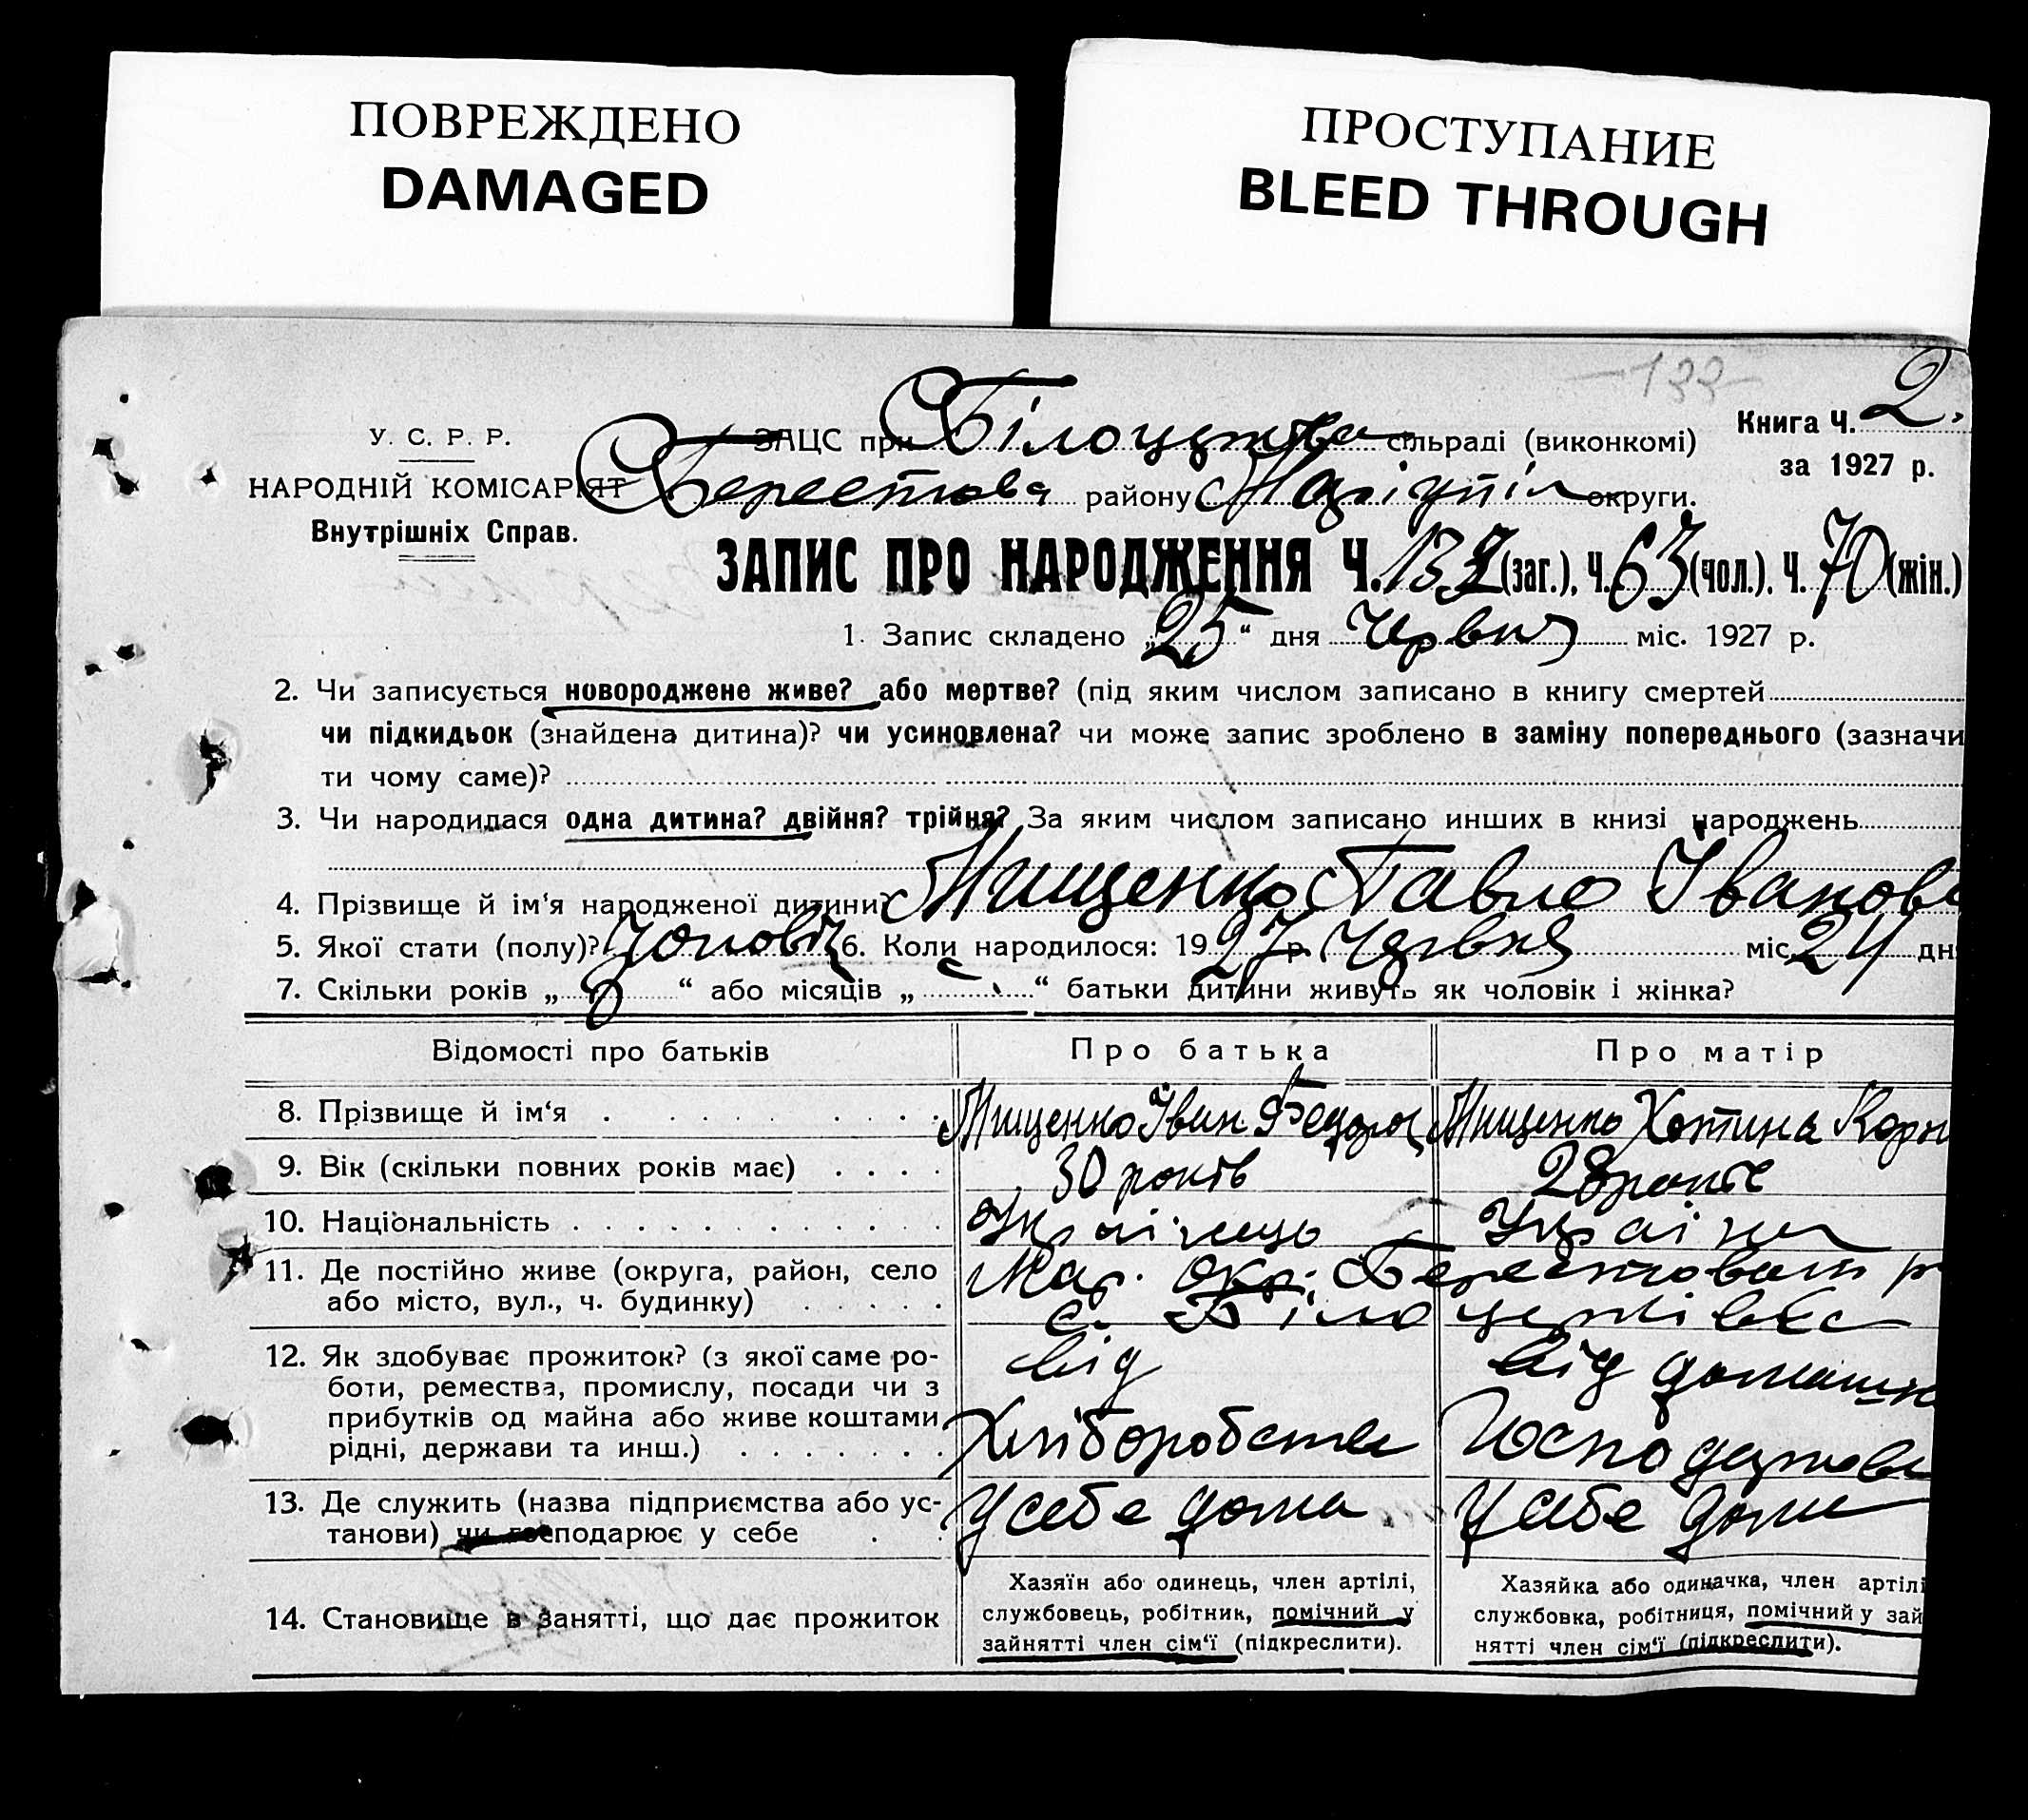 ПОВРЕЖДЕНО
DAMAGED
ПРОСТУПАНИЕ
BLEED THROUGH
Книга Ч. 2.
за 1927 р.
У. С. Р. Р.
НАРОДНІЙ КОМІСАРІЯТ
Внутрішніх Справ.
ЗАЦС при сільраді (виконкомі)
району округи.
ЗАПИС ПРО НАРОДЖЕННЯ Ч. (заг.), Ч. 63 (чол.), Ч. 70 (жін.)
1. Запис складено „25“ дня Червня міс. 1927 р.
2. Чи записується новороджене живе? або мертве? (під яким числом записано в книгу смертей
чи підкидьок (знайдена дитина)? чи усиновлена? чи може запис зроблено в заміну попереднього (зазначи
ти чому саме)?
3. Чи народилася одна дитина? двійня? трійня? За яким числом записано инших в книзі народжень
4. Прізвище й ім‘я народженої дитини? Мищенко Павло Іванов
5. Якої стати (полу)? 6. Коли народилося: 1927 р. Червня міс. 24 дн
7. Скільки років „ “ або місяців „ “ батьки дитини живуть як чоловік і жінка?
Відомості про батьків Про батька Про матір
8. Прізвище й ім‘я Мищенко Іван Федоро Мищенко Хотина Корн
9. Вік (скільки повних років має) 30 років 28 років
10. Національність Українець Україн
11. Де постійно живе (округа, район, село Мар. окр. Берестоват р
або місто, вул., ч. будинку) с.
12. Як здобуває прожиток? (з якої саме ро- від від домашн
боти, ремества, промислу, посади чи з
прибутків од майна або живе коштами Хліборобства Господарства
рідні, держави та инш.)
13. Де служить (назва підприємства або ус- У себе дома У себе дома
танови) чи господарює у себе
Хазяїн або одинець, член артілі, Хазяйка або одиначка, член артілі
14. Становище в занятті, що дає прожиток службовець, робітник, помічний у службовка, робітниця, помічний у зай
зайнятті член сім‘ї (підкреслити). нятті член сім‘ї (підкреслити).